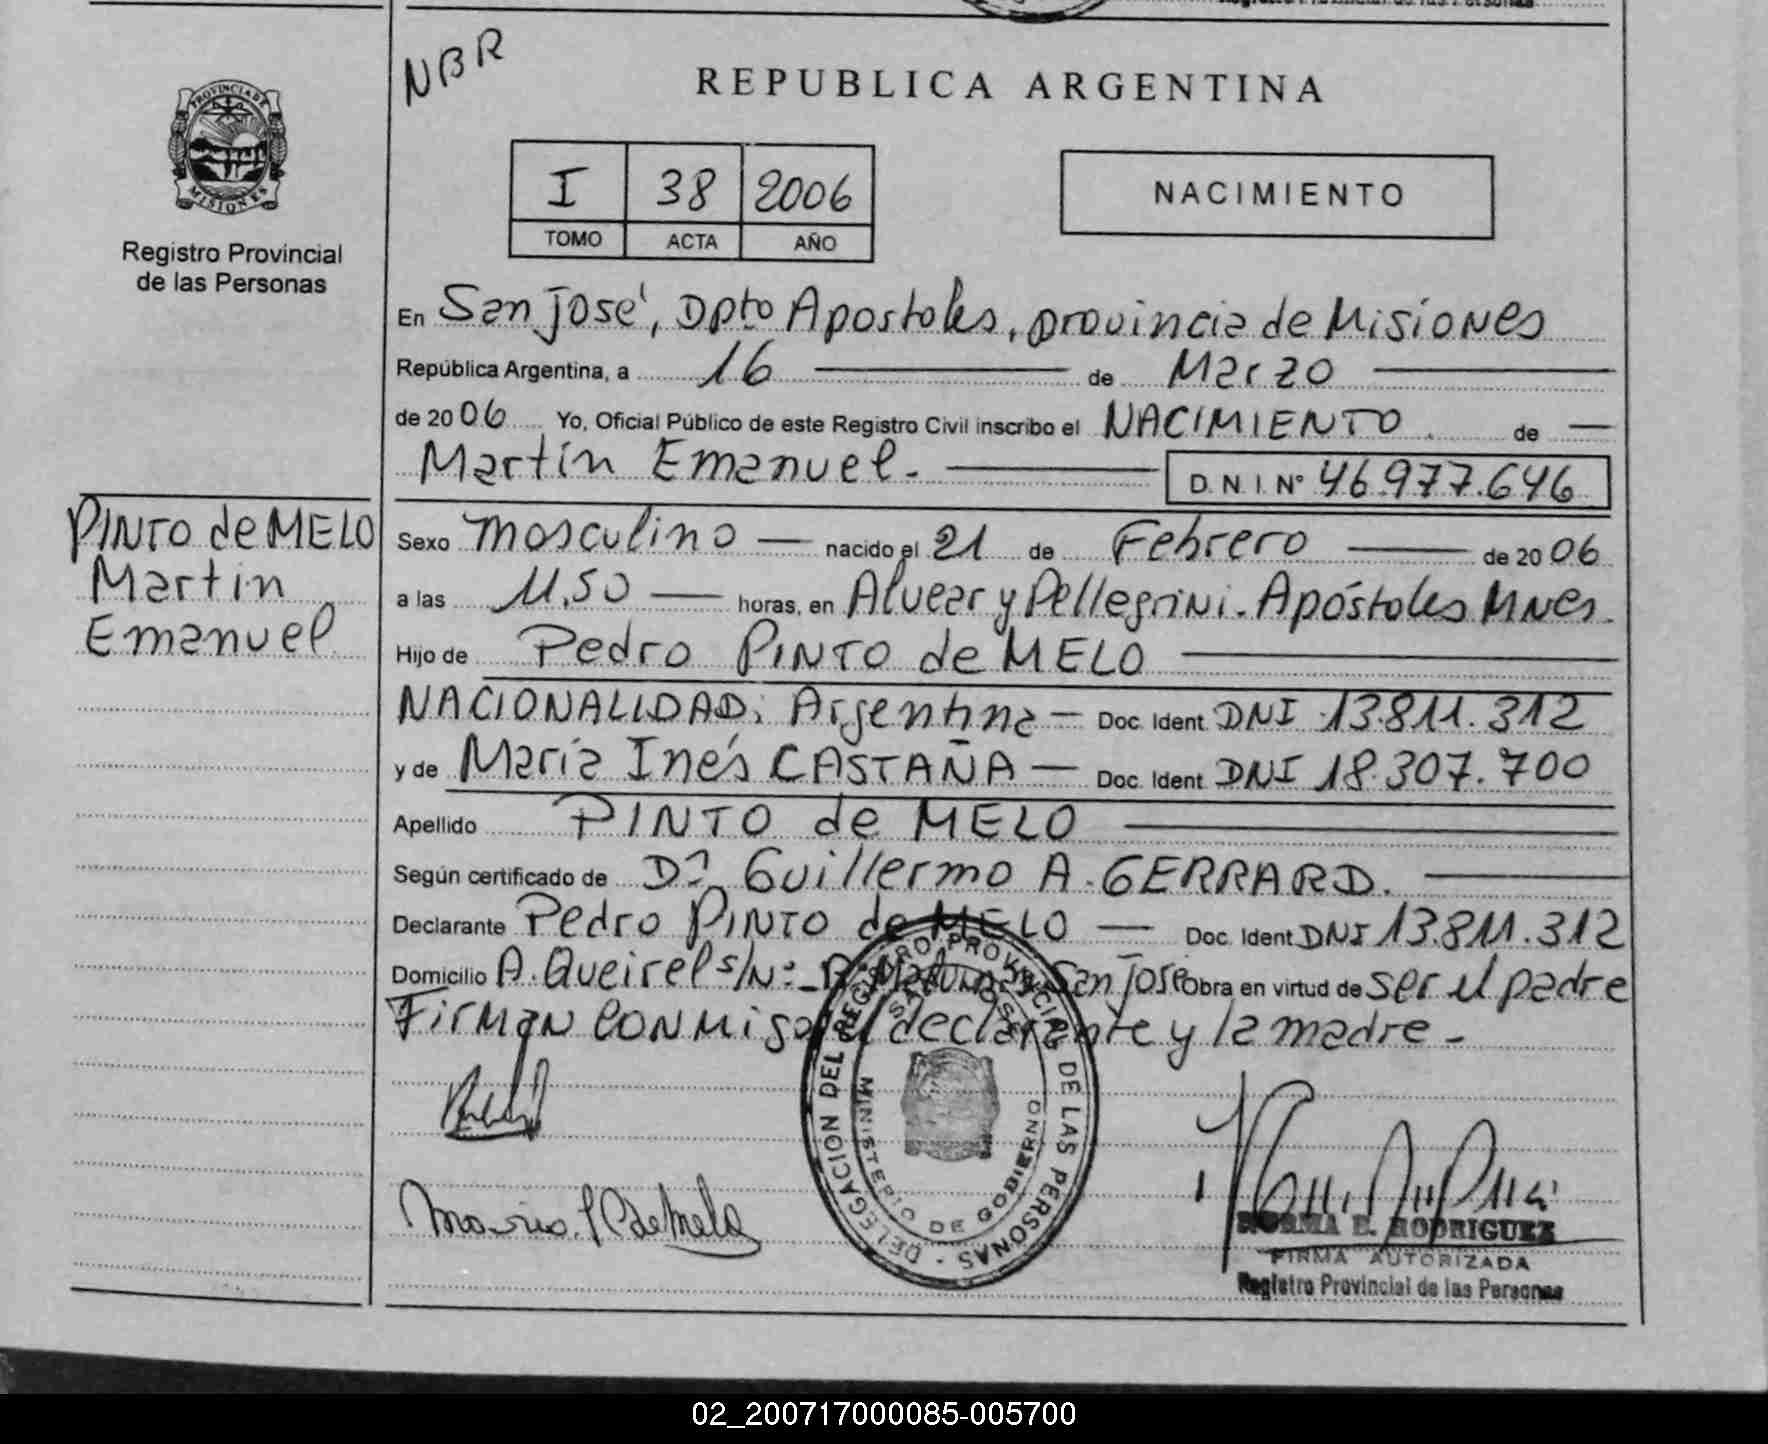 Registro Provincial de las Personas
NBR
REPUBLICA ARGENTINA
PROVINCIA DE
MISIONES
Registro Provincial
de las Personas
I 38 2006
TOMO ACTA AÑO
NACIMIENTO
En San José, Dpto Apostoles, provincia de Misiones
República Argentina, a 16 de Marzo
de 2006 Yo, Oficial Público de este Registro Civil inscribo el NACIMIENTO de
Martín Emanuel.- D.N.I. N° 46.977.646
PINTO de MELO
Martin
Emanuel
Sexo masculino nacido el 21 de Febrero de 2006
a las 11,50 horas, en Alvear y Pellegrini. Apóstoles Mnes.
Hijo de Pedro PINTO de MELO
NACIONALIDAD: Argentina - Doc. Ident. DNI 13.811.312
y de María Inés CASTAÑA - Doc. Ident. DNI 18.307.700
Apellido PINTO de MELO
Según certificado de Dr. Guillermo A. GERRARD.
Declarante Pedro PINTO de MELO - Doc. Ident DNI 13.811.312
Domicilio A. Queirel s/N°- San José Obra en virtud de ser el padre
Firman conmigo el declarante y la madre -
DELEGACION DEL REGISTRO PROVINCIAL DE LAS PERSONAS -
SAN JOSE
MINISTERIO DE GOBIERNO
NORMA E. RODRIGUEZ
FIRMA AUTORIZADA
Registro Provincial de las Personas
02_200717000085-005700